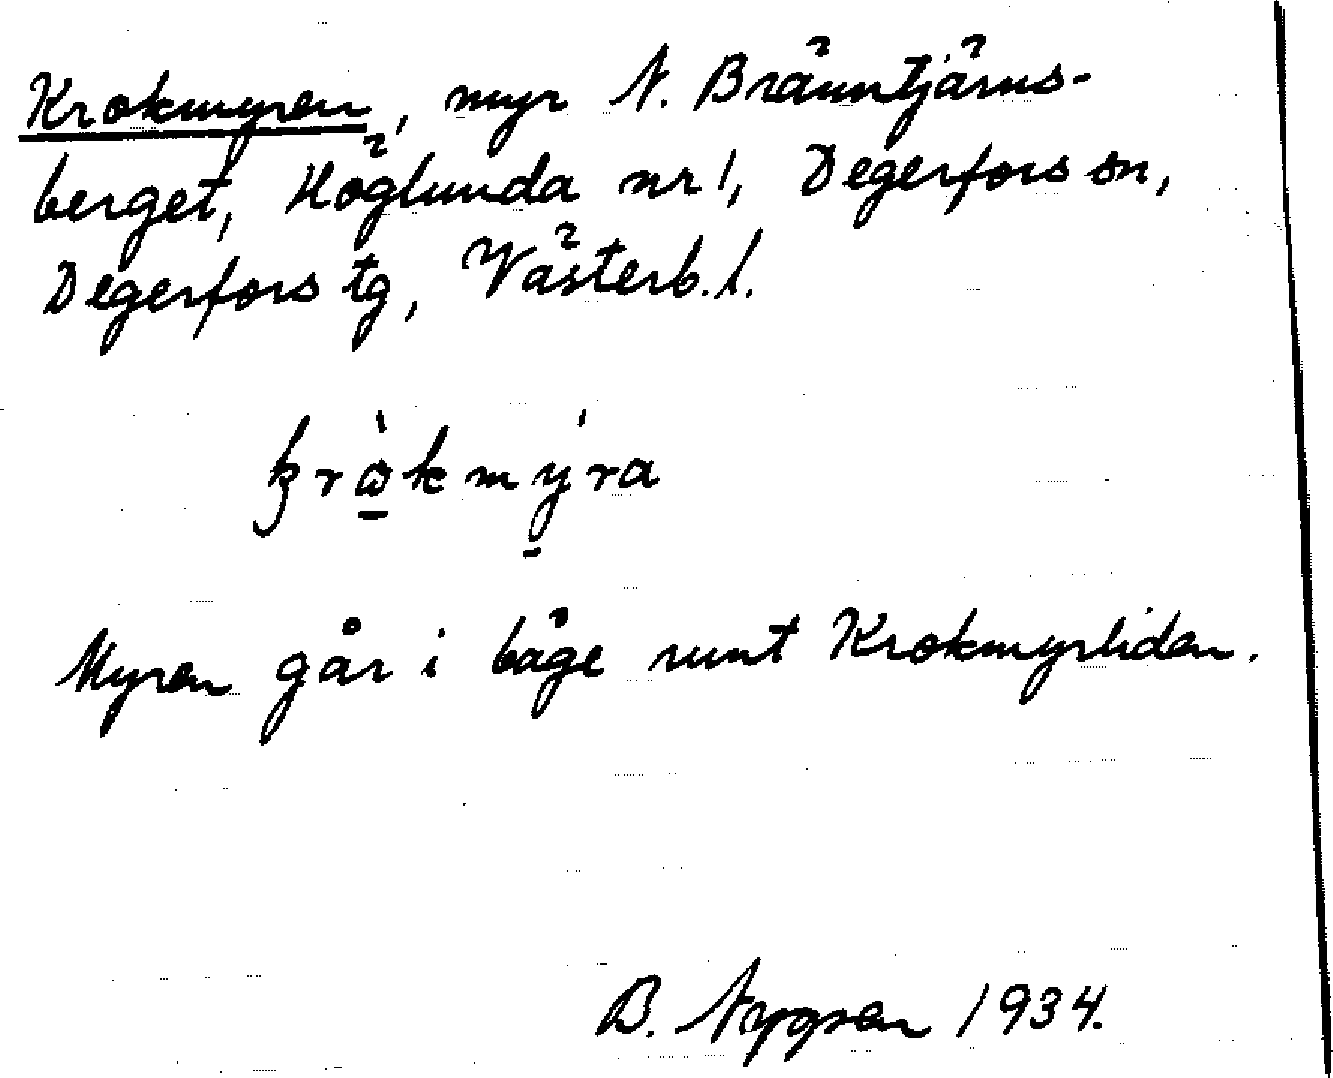 Krokmyren, myr N. Bräuntjärns-
berget, Höglunda nr 1, Degerfors sn,
Degerfors tg, Västerb. l.
krωkmyra
Myren går i båge runt Krokmyrliden.
B. Nygren 1934.